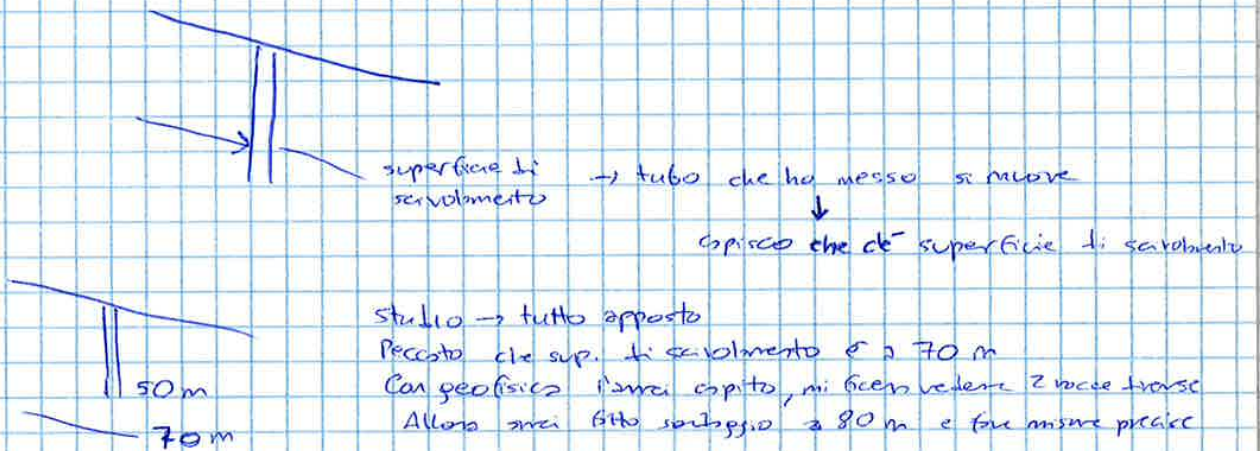 superficie di → tubo che ho messo si muove
scivolamento
↓
capisco che c'è superficie di scivolamento
studio → tutto apposto
Peccato che sup. di scivolamento è a 70 m
50 m
Con geofisica l'avrei capito, mi faceva vedere 2 rocce diverse
70 m
Allora avrei fatto sondaggio a 80 m e fare misure precise